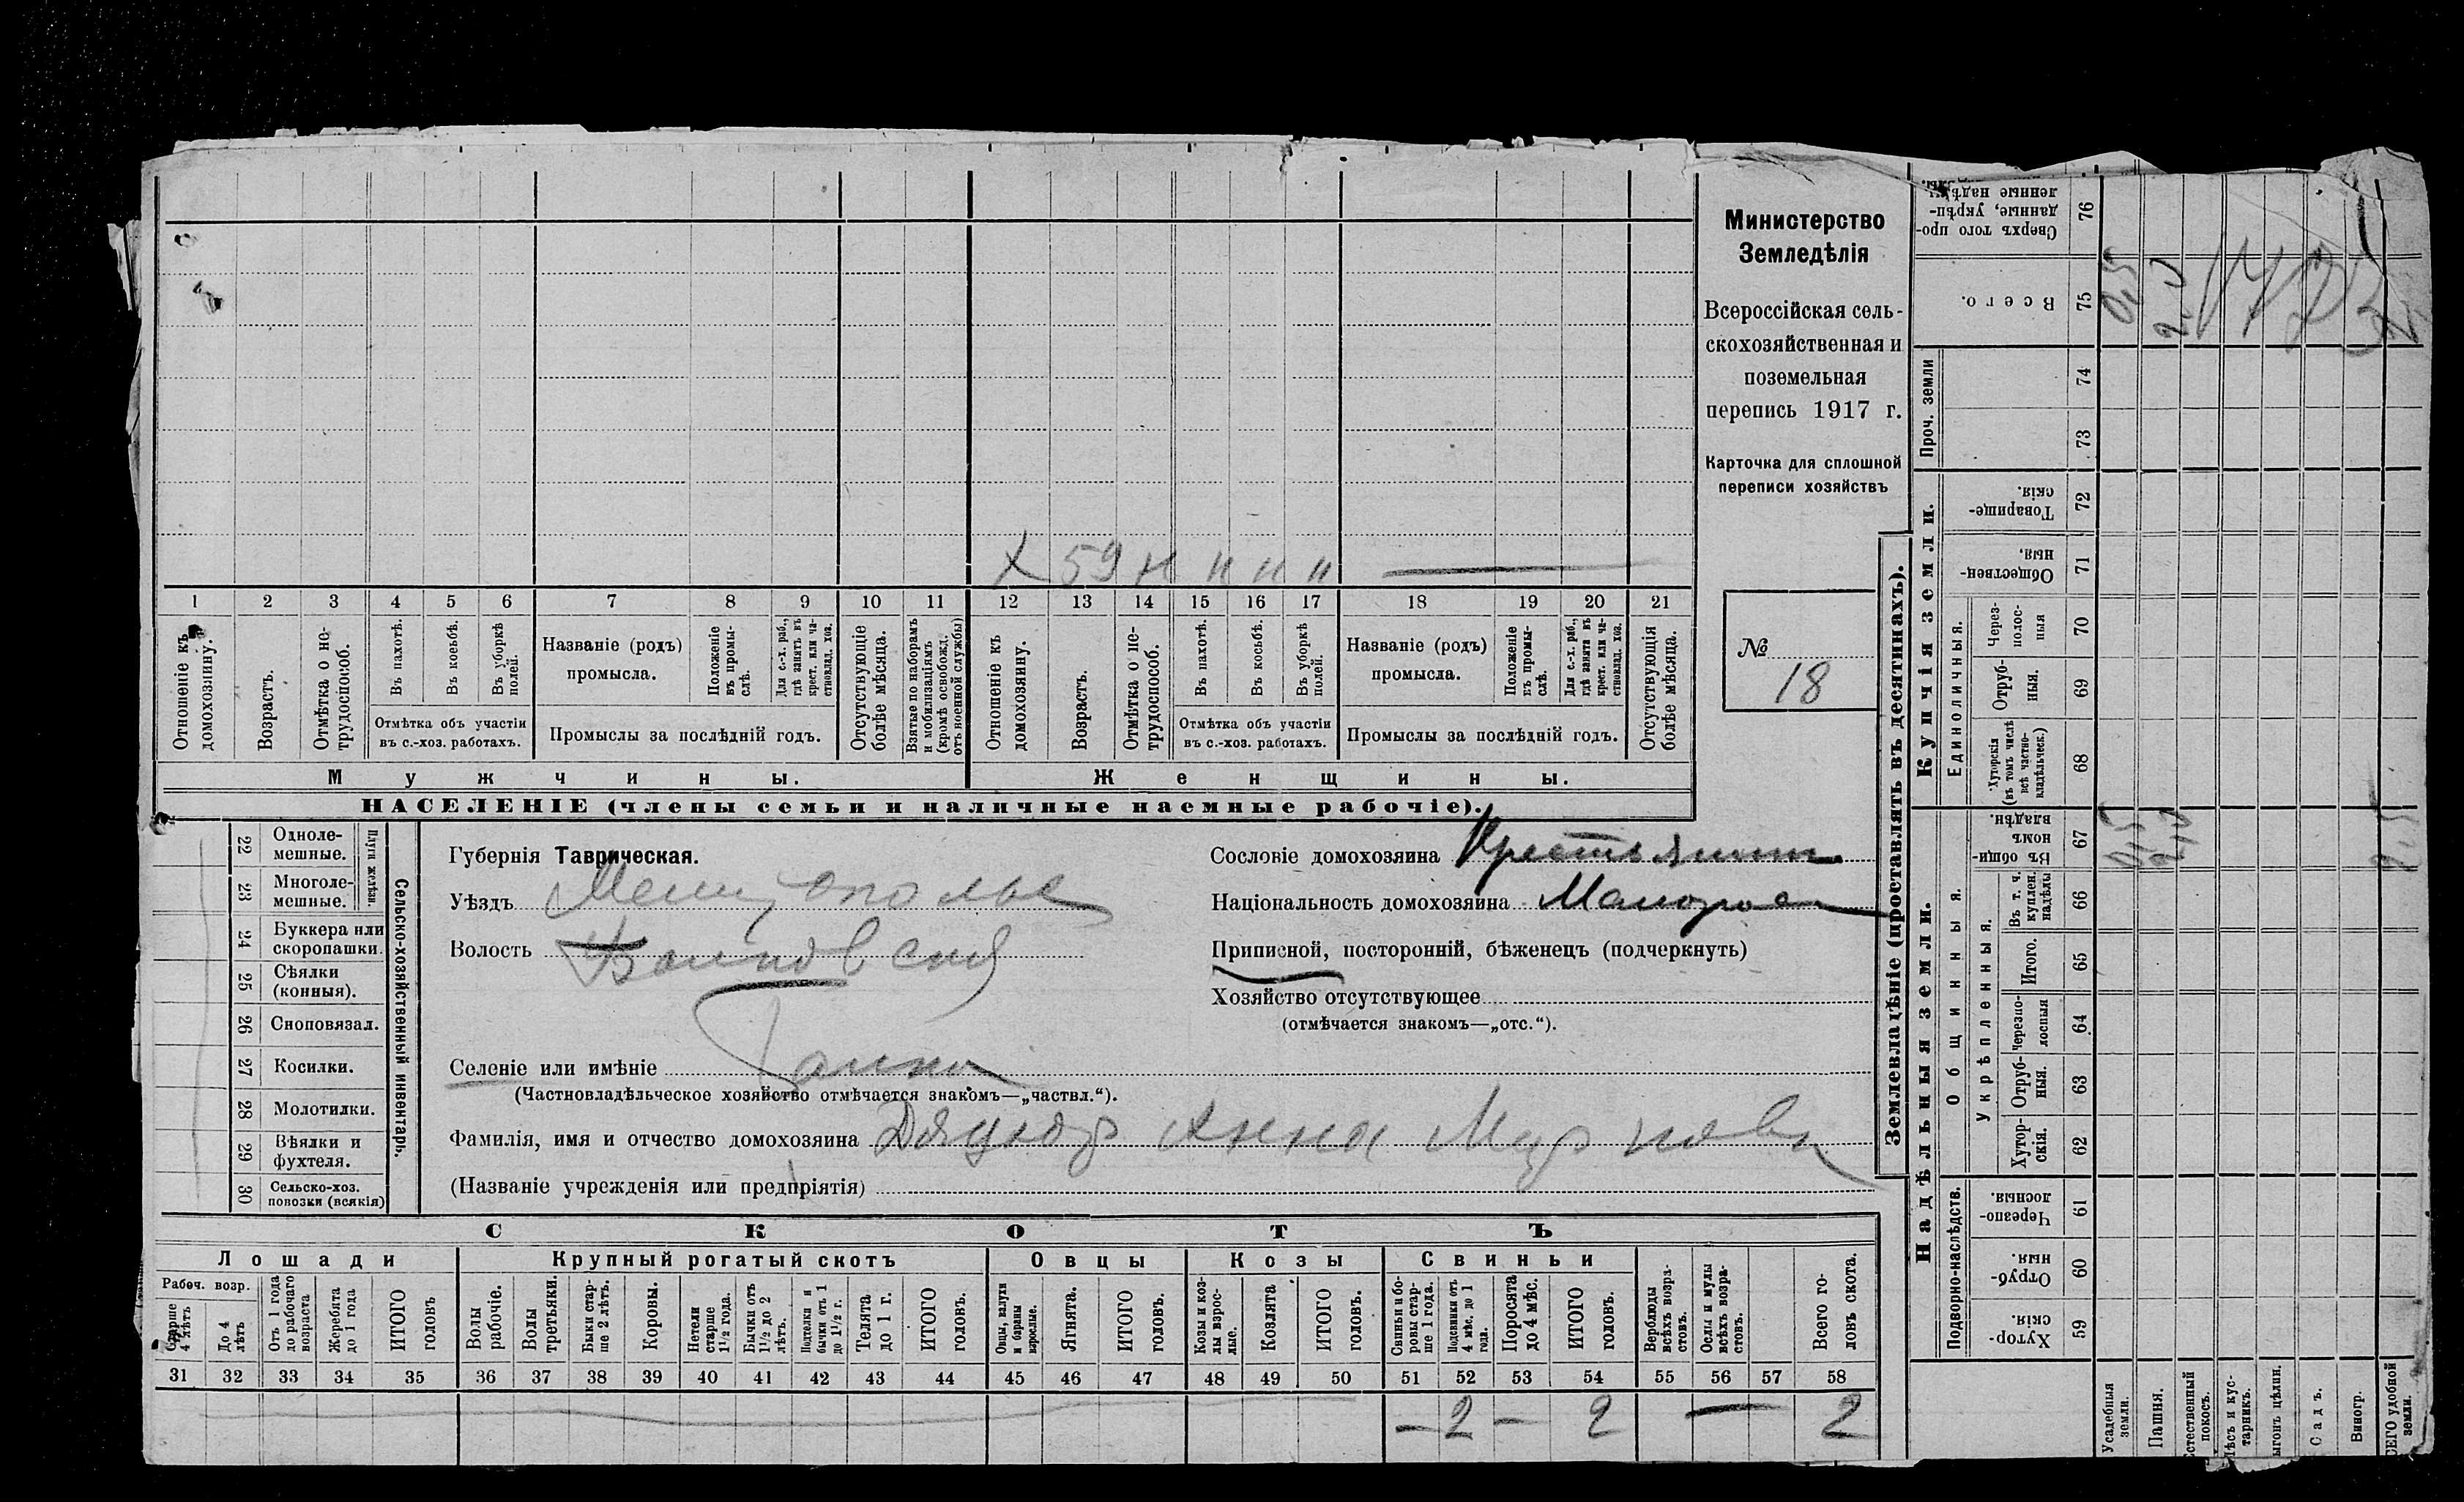 Министерство
Земледѣлія
Всероссійская сель-
скохозяйственная и
поземельная
перепись 1917 г.
Карточка для сплошной
переписи хозяйствъ
№
18
X 59 н и и и
1 2 3 4 5 6 7 8 9 10 11 12 13 14 15 16 17 18 19 20 21
Отношеніе къ домохозяину.
Возрастъ.
Отмѣтка о не-трудоспособ.
Въ пахотѣ.
Въ косьбѣ.
Въ уборкѣ полей.
Отмѣтка объ участіи
въ с.-хоз. работахъ.
Названіе (родъ)
промысла.
Положеніе въ промы-слѣ.
Для с.-х. раб., гдѣ занятъ въ крест. или ча-стновлад. хоз.
Промыслы за послѣдній годъ.
Отсутствующіе болѣе мѣсяца.
Взятые по наборамъ и мобилизаціямъ (кромѣ освобожд. отъ военной службы)
Отношеніе къ домохозяину.
Возрастъ.
Отмѣтка о не-трудоспособ.
Въ пахотѣ.
Въ косьбѣ.
Въ уборкѣ полей.
Отмѣтка объ участіи
въ с.-хоз. работахъ.
Названіе (родъ)
промысла.
Положеніе въ промы-слѣ.
Для с.-х. раб., гдѣ занята въ крест. или ча-стновлад. хоз.
Промыслы за послѣдній годъ.
Отсутствующія болѣе мѣсяца.
Мужчины.
Женщины.
НАСЕЛЕНІЕ (члены семьи и наличные наемные рабочіе).
Сельско-хозяйственный инвентарь.
Плуги желѣзн.
22 Одноле-мешные.
23 Многоле-мешные.
24 Буккера или скоропашки.
25 Сѣялки (конныя).
26 Сноповязал.
27 Косилки.
28 Молотилки.
29 Вѣялки и фухтеля.
30 Сельско-хоз. повозки (всякія)
Губернія Таврическая.
Уѣздъ
Волость
Селеніе или имѣніе
(Частновладѣльческое хозяйство отмѣчается знакомъ—„частвл.“).
Фамилія, имя и отчество домохозяина Анна
(Названіе учрежденія или предпріятія)
Сословіе домохозяина Крестьянин
Національность домохозяина Малоросс
Приписной, посторонній, бѣженецъ (подчеркнуть)
Хозяйство отсутствующее
(отмѣчается знакомъ—„отс.“).
СКОТЪ
Лошади
Крупный рогатый скотъ
Овцы
Козы
Свиньи
Рабоч. возр.
Старше 4 лѣтъ
До 4 лѣтъ
Отъ 1 года до рабочаго возраста
Жеребята до 1 года
ИТОГО головъ
Волы рабочіе.
Волы третьяки.
Быки стар-ше 2 лѣтъ.
Коровы.
Нетели старше 1½ года.
Бычки отъ 1½ до 2 лѣтъ.
Подтелки и бычки отъ 1 до 1½ г.
Телята до 1 г.
ИТОГО головъ.
Овцы, валухи и бараны взрослые.
Ягнята.
ИТОГО головъ.
Козы и коз-лы взрос-лые.
Козлята
ИТОГО головъ.
Свиньи и бо-ровы стар-ше 1 года.
Подсвинки отъ 4 мѣс. до 1 года.
Поросята до 4 мѣс.
ИТОГО головъ.
Верблюды всѣхъ возра-стовъ.
Ослы и мулы всѣхъ возра-стовъ.
Всего го-ловъ скота.
31 32 33 34 35 36 37 38 39 40 41 42 43 44 45 46 47 48 49 50 51 52 53 54 55 56 57 58
— 2 — 2 — 2
Землевладѣніе (проставлять въ десятинахъ).
Купчія земли.
Надѣльныя земли.
Сверхъ того про-данные, укрѣп-ленные надѣлы. 76
Всего. 75
Проч. земли
74
73
Товарище-скія. 72
Обществен-ныя, 71
Единоличныя.
Через-полос-ныя 70
Отруб-ныя. 69
Хуторскія (въ томъ числѣ всѣ частно-владѣльческ.) 68
Общинныя.
Въ общин-номъ владѣн. 67
Укрѣпленныя.
Въ т. ч. куплен. надѣлы 66
Итого. 65
Черезпо-лосныя 64
Отруб-ныя. 63
Хутор-скія. 62
Подворно-наслѣдств.
Черезпо-лосныя. 61
Отруб-ныя. 60
Хутор-скія. 59
Усадебныя земли.
Пашня.
Естественный покосъ.
Лѣсъ и кус-тарникъ.
Садъ.
Виногр.
удобной земли.